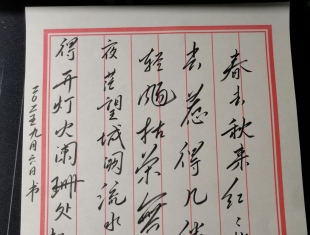 春去秋来红
去惹得几
轻飏枯荣
夜茫望城阔流水
得开灯火阑珊处
二〇二五九月六日书